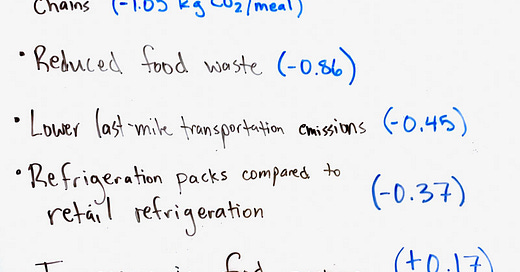 Chains (-1.05 kg CO2/meal)
• Reduced food waste (-0.86)
• Lower last-mile transportation emissions (-0.45)
• Refrigeration packs compared to
retail refrigeration (-0.37)
(+0.17)